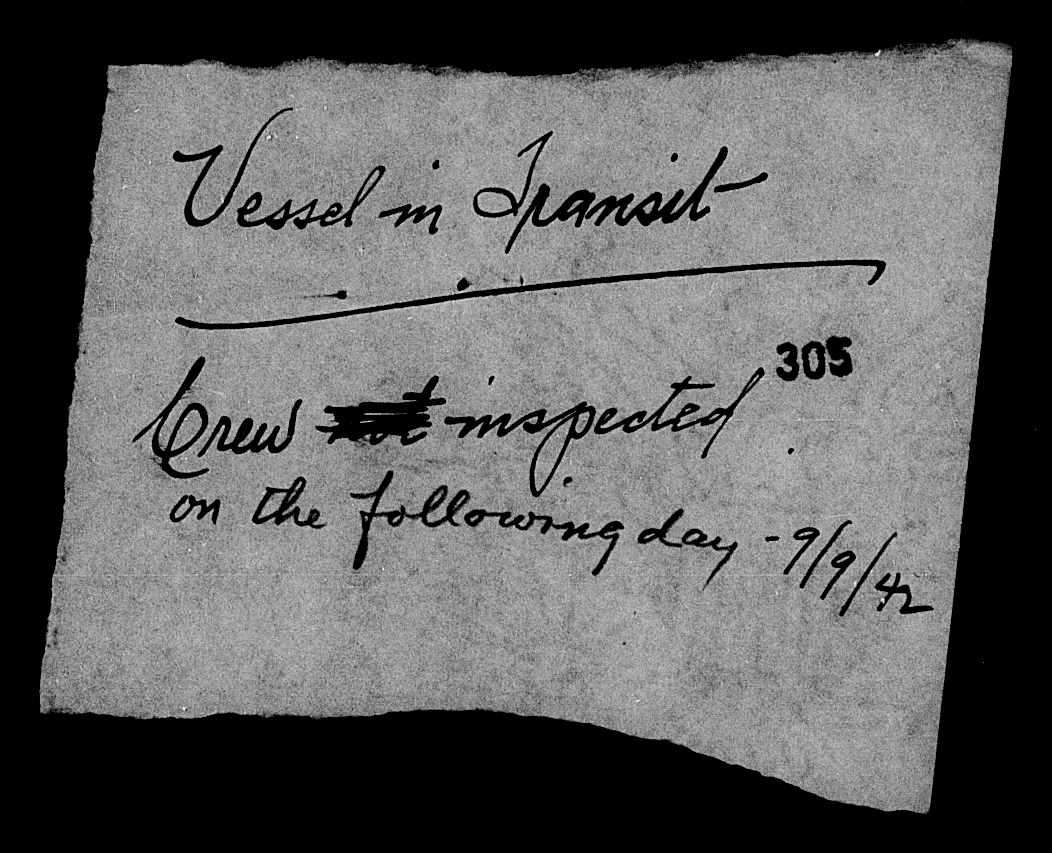 Vessel in Transit
305
Crew not inspected.
on the following day - 9/9/42